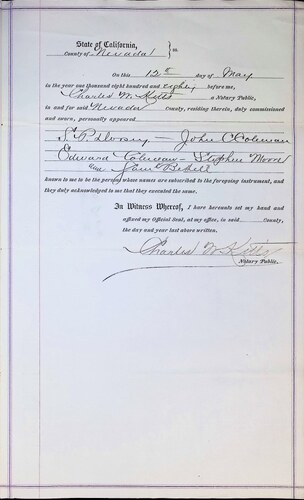 State of California, } ss.
County of Nevada
On this 12th day of May
in the year one thousand eight hundred and eighty before me,
Charles W. Kitts a Notary Public,
in and for said Nevada County, residing therein, duly commissioned
and sworn, personally appeared
John C Coleman
Edward Coleman – Stephen Moore
and
known to me to be the persons whose names are subscribed to the foregoing instrument, and
they duly acknowledged to me that they executed the same.
In Witness Whereof, I have hereunto set my hand and
affixed my Official Seal, at my office, in said County,
the day and year last above written.
Charles W. Kitts
Notary Public.